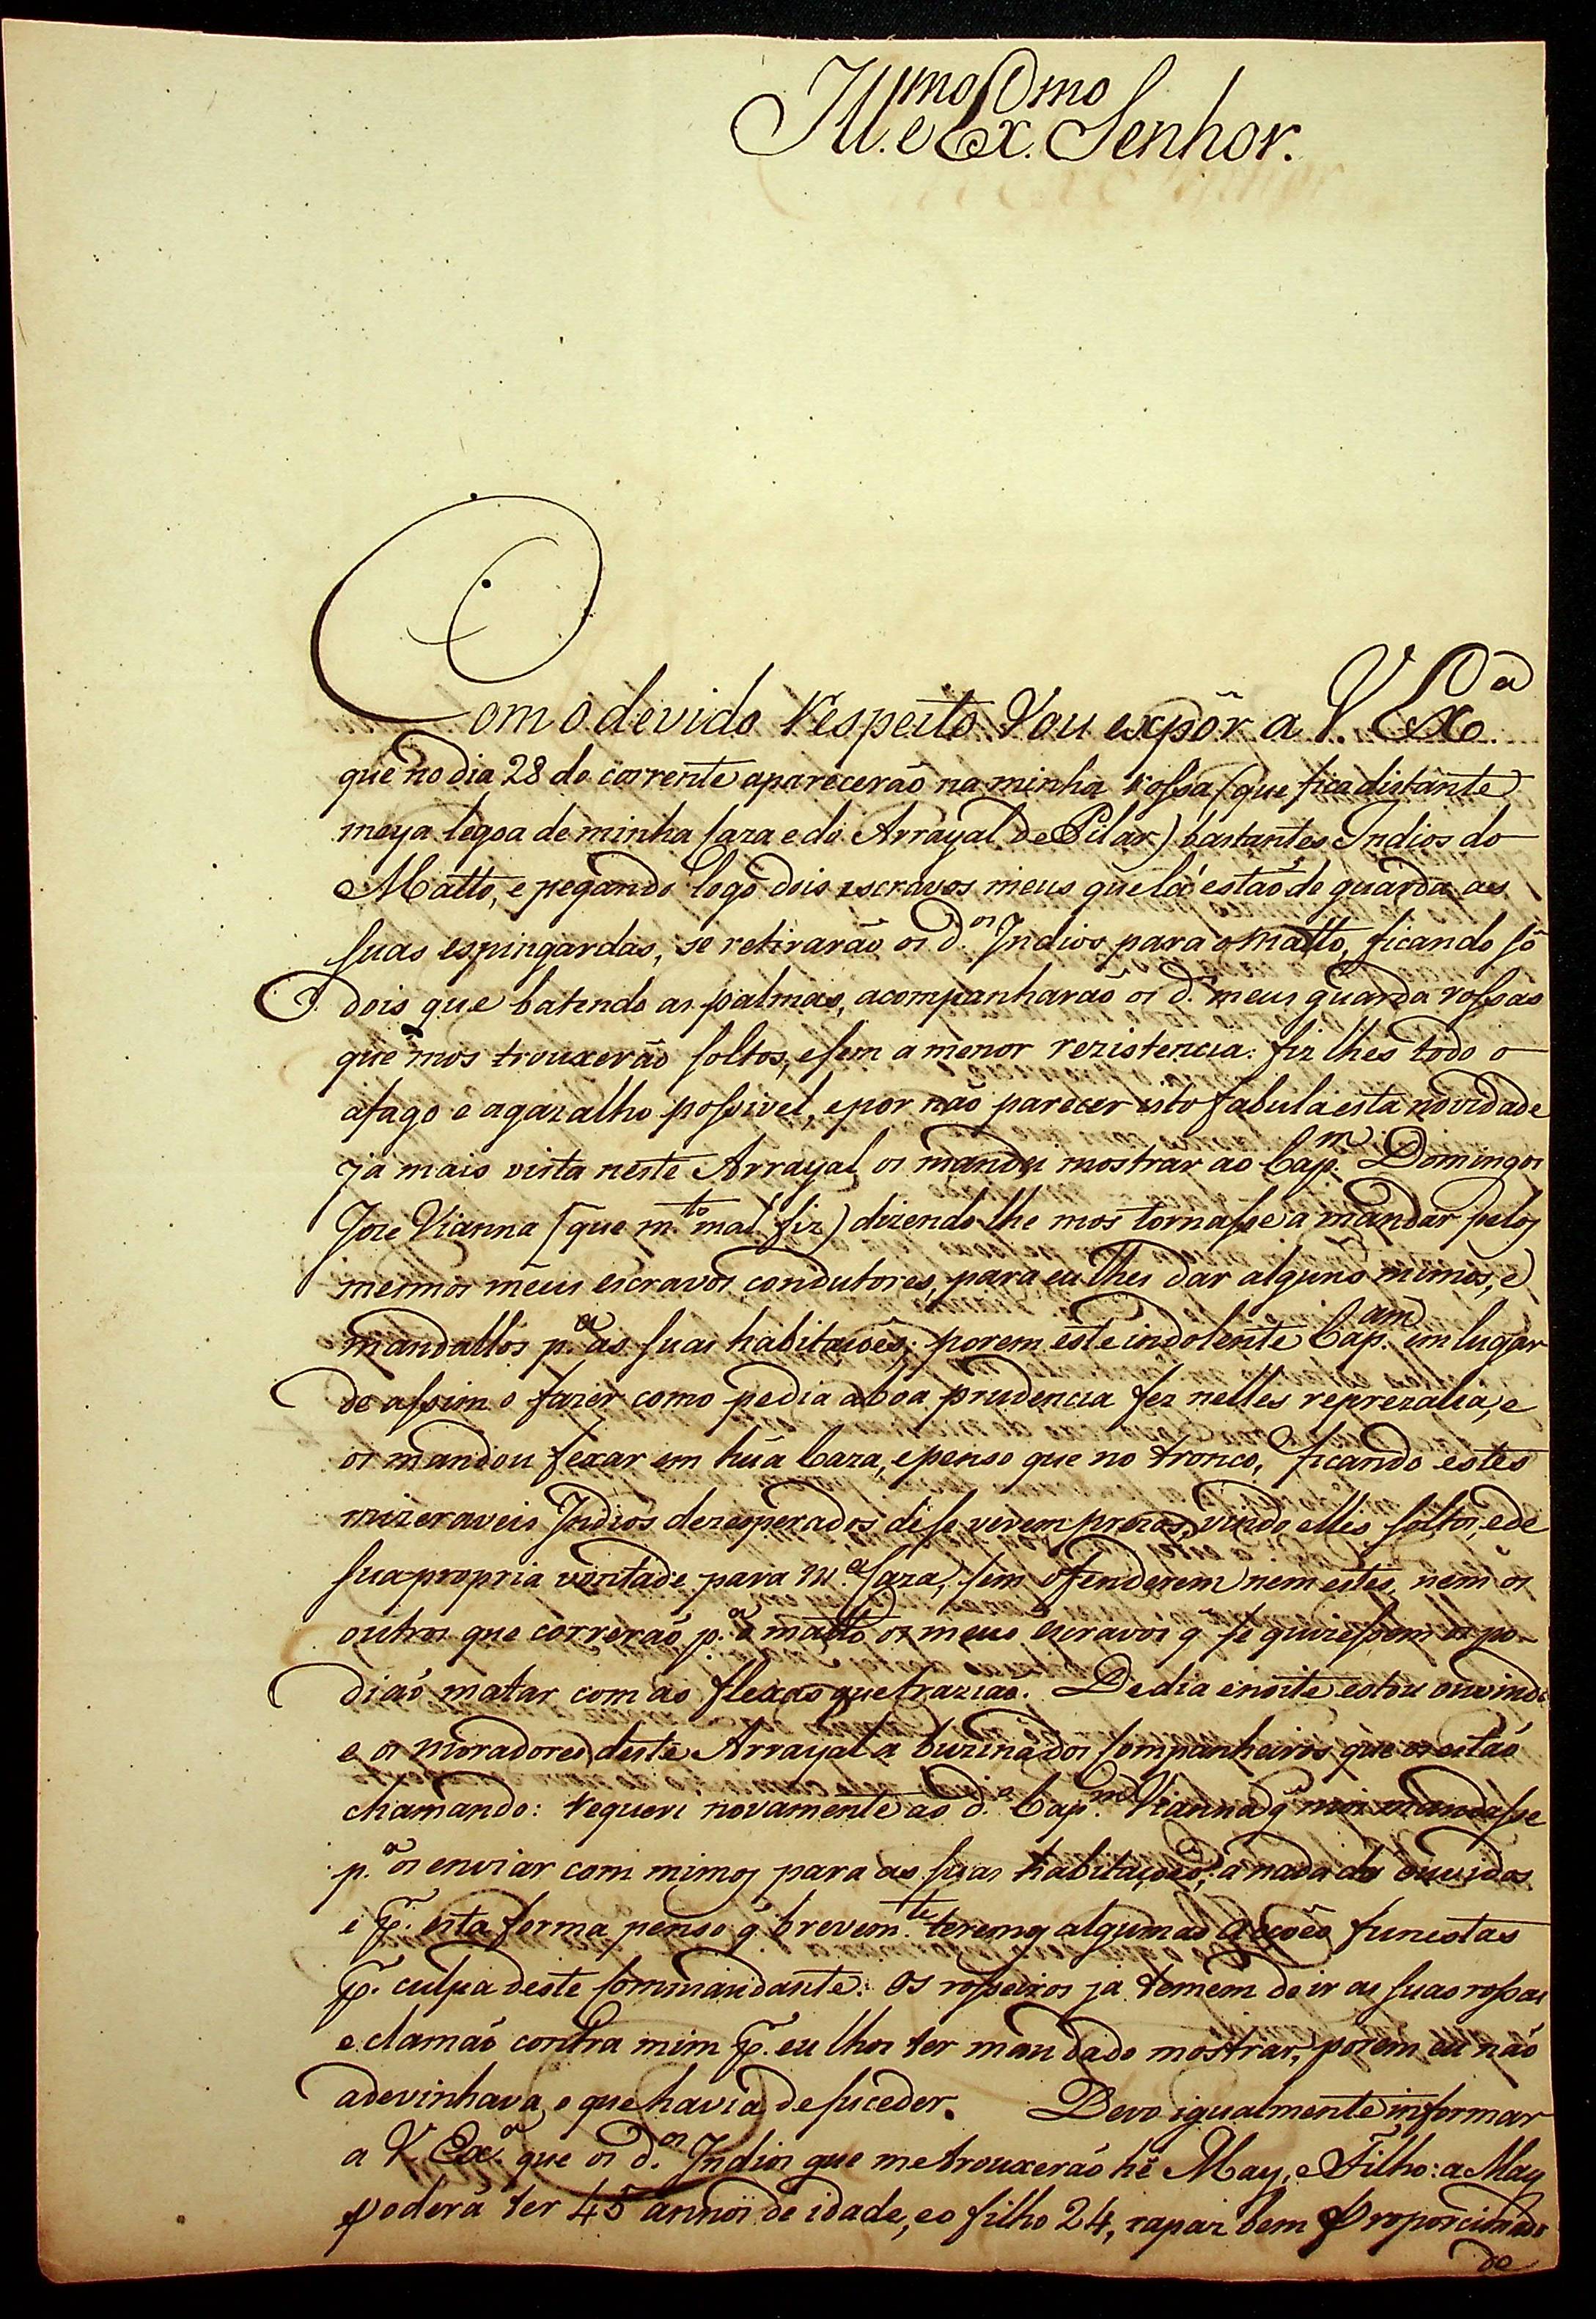 Ill.mo e Ex.mo Senhor.
Com o devido respeito vou expôr a V. Ex.a
que no dia 28 do corrente aparecerão na minha rossa (que fica distante
meya legoa de minha Caza e do Arrayal de Pilar) bastantes Indios do
Matto, e pegando logo dois escravos meus que lá estão de guarda as
suas espingardas, se retirarão os d.os Indios para o matto, ficando só
dois que batendo as palmas, acompanharão os d.os meus guarda rossas
que mos trouxerão soltos, e sem a menor rezistencia: fiz lhes todo o
afago e agazalho possivel, e por não parecer isto fabula esta novidade
já mais vista neste Arrayal os mandei mostrar ao Cap.m Domingos
Joze Vianna (que m.to mal fiz) dizendo lhe mos tornasse a mandar pelos
mesmos meus escravos condutores, para eu lhes dar alguns mimos, e
mandallos p.a as suas habitaçoes; porem este indolente Cap.am em lugar
de assim o fazer como pedia a boa prudencia fez nelles reprezalia, e
os mandou fexar em hũa Caza, e penso que no tronco, ficando estes
mizeraveis Indios dezesperados de se verem prezos, vindo elles soltos, e de
sua propria vontade para m.a Caza, sem ofenderem nem estes, nem os
outros que correrão p.a o matto os meus escravos q̃ se quizessem os po-
dião matar com as flexas que trazião. De dia e noite estou ouvindo
e os moradores deste Arrayal a buzina dos Companheiros que os estão
chamando: requeri novamente ao d.o Cap.m Vianna q̃ mos mandasse
p.a os enviar com mimos para as suas habitaçoes, a nada dá ouvidos
e p̃. esta forma penso q̃ brevem.te teremos algumas acçoes funestas
p̃. culpa deste Commandante: os rosseiros ja temem de ir as suas rossas
e clamão contra mim p̃. eu lhos ter mandado mostrar, porem eu não
adevinhava o que havia de suceder. Devo igualmente informar
a V. Ex.a que os d.os Indios que me trouxerão hé May, e Filho: a May
poderá ter 45 annos de idade, e o filho 24, rapaz bem proporcinado
de